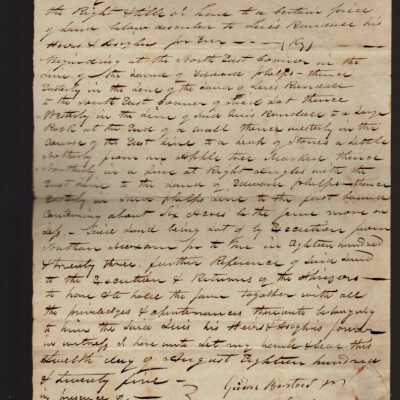 the Right & title I have to a certain piece
of Land below described to Luis Rundale his
Heirs & Assighn for Ever
Beginning at the North East Corner in the
Line of the Land of Edward Phelps - thence
Easterly in the Line of the Land of Luis Rundale
to the South East Corner of said Lot thence
Westerly in the Line of said Luis Rundale to a Large
Rock at the End of a wall thence westerly in the
Course of the East Line to a heap of Stones a little
Northerly from an Apple tree Marked thence
Northerly in a Line at Right Angles with the
East Line to the Land of Edward Phelps - thence
Easterly in said Phelps Line to the first bound
Containing about Six Acres be the same more or
Less - Said Land being Set of by Execution from
Jonathan to me in Eighteen hundred
& twenty three, further Reference of said Land
to the Execution & Returns of the
to have & to hold the same together with all
the priviledges & apurtenances thereunto belonging
to him the said Luis his Heirs & Assighns forever
in witness I here unto Set my hand & Seal this
twelth day of August Eighteen hundred
& twenty five -
in presence of -